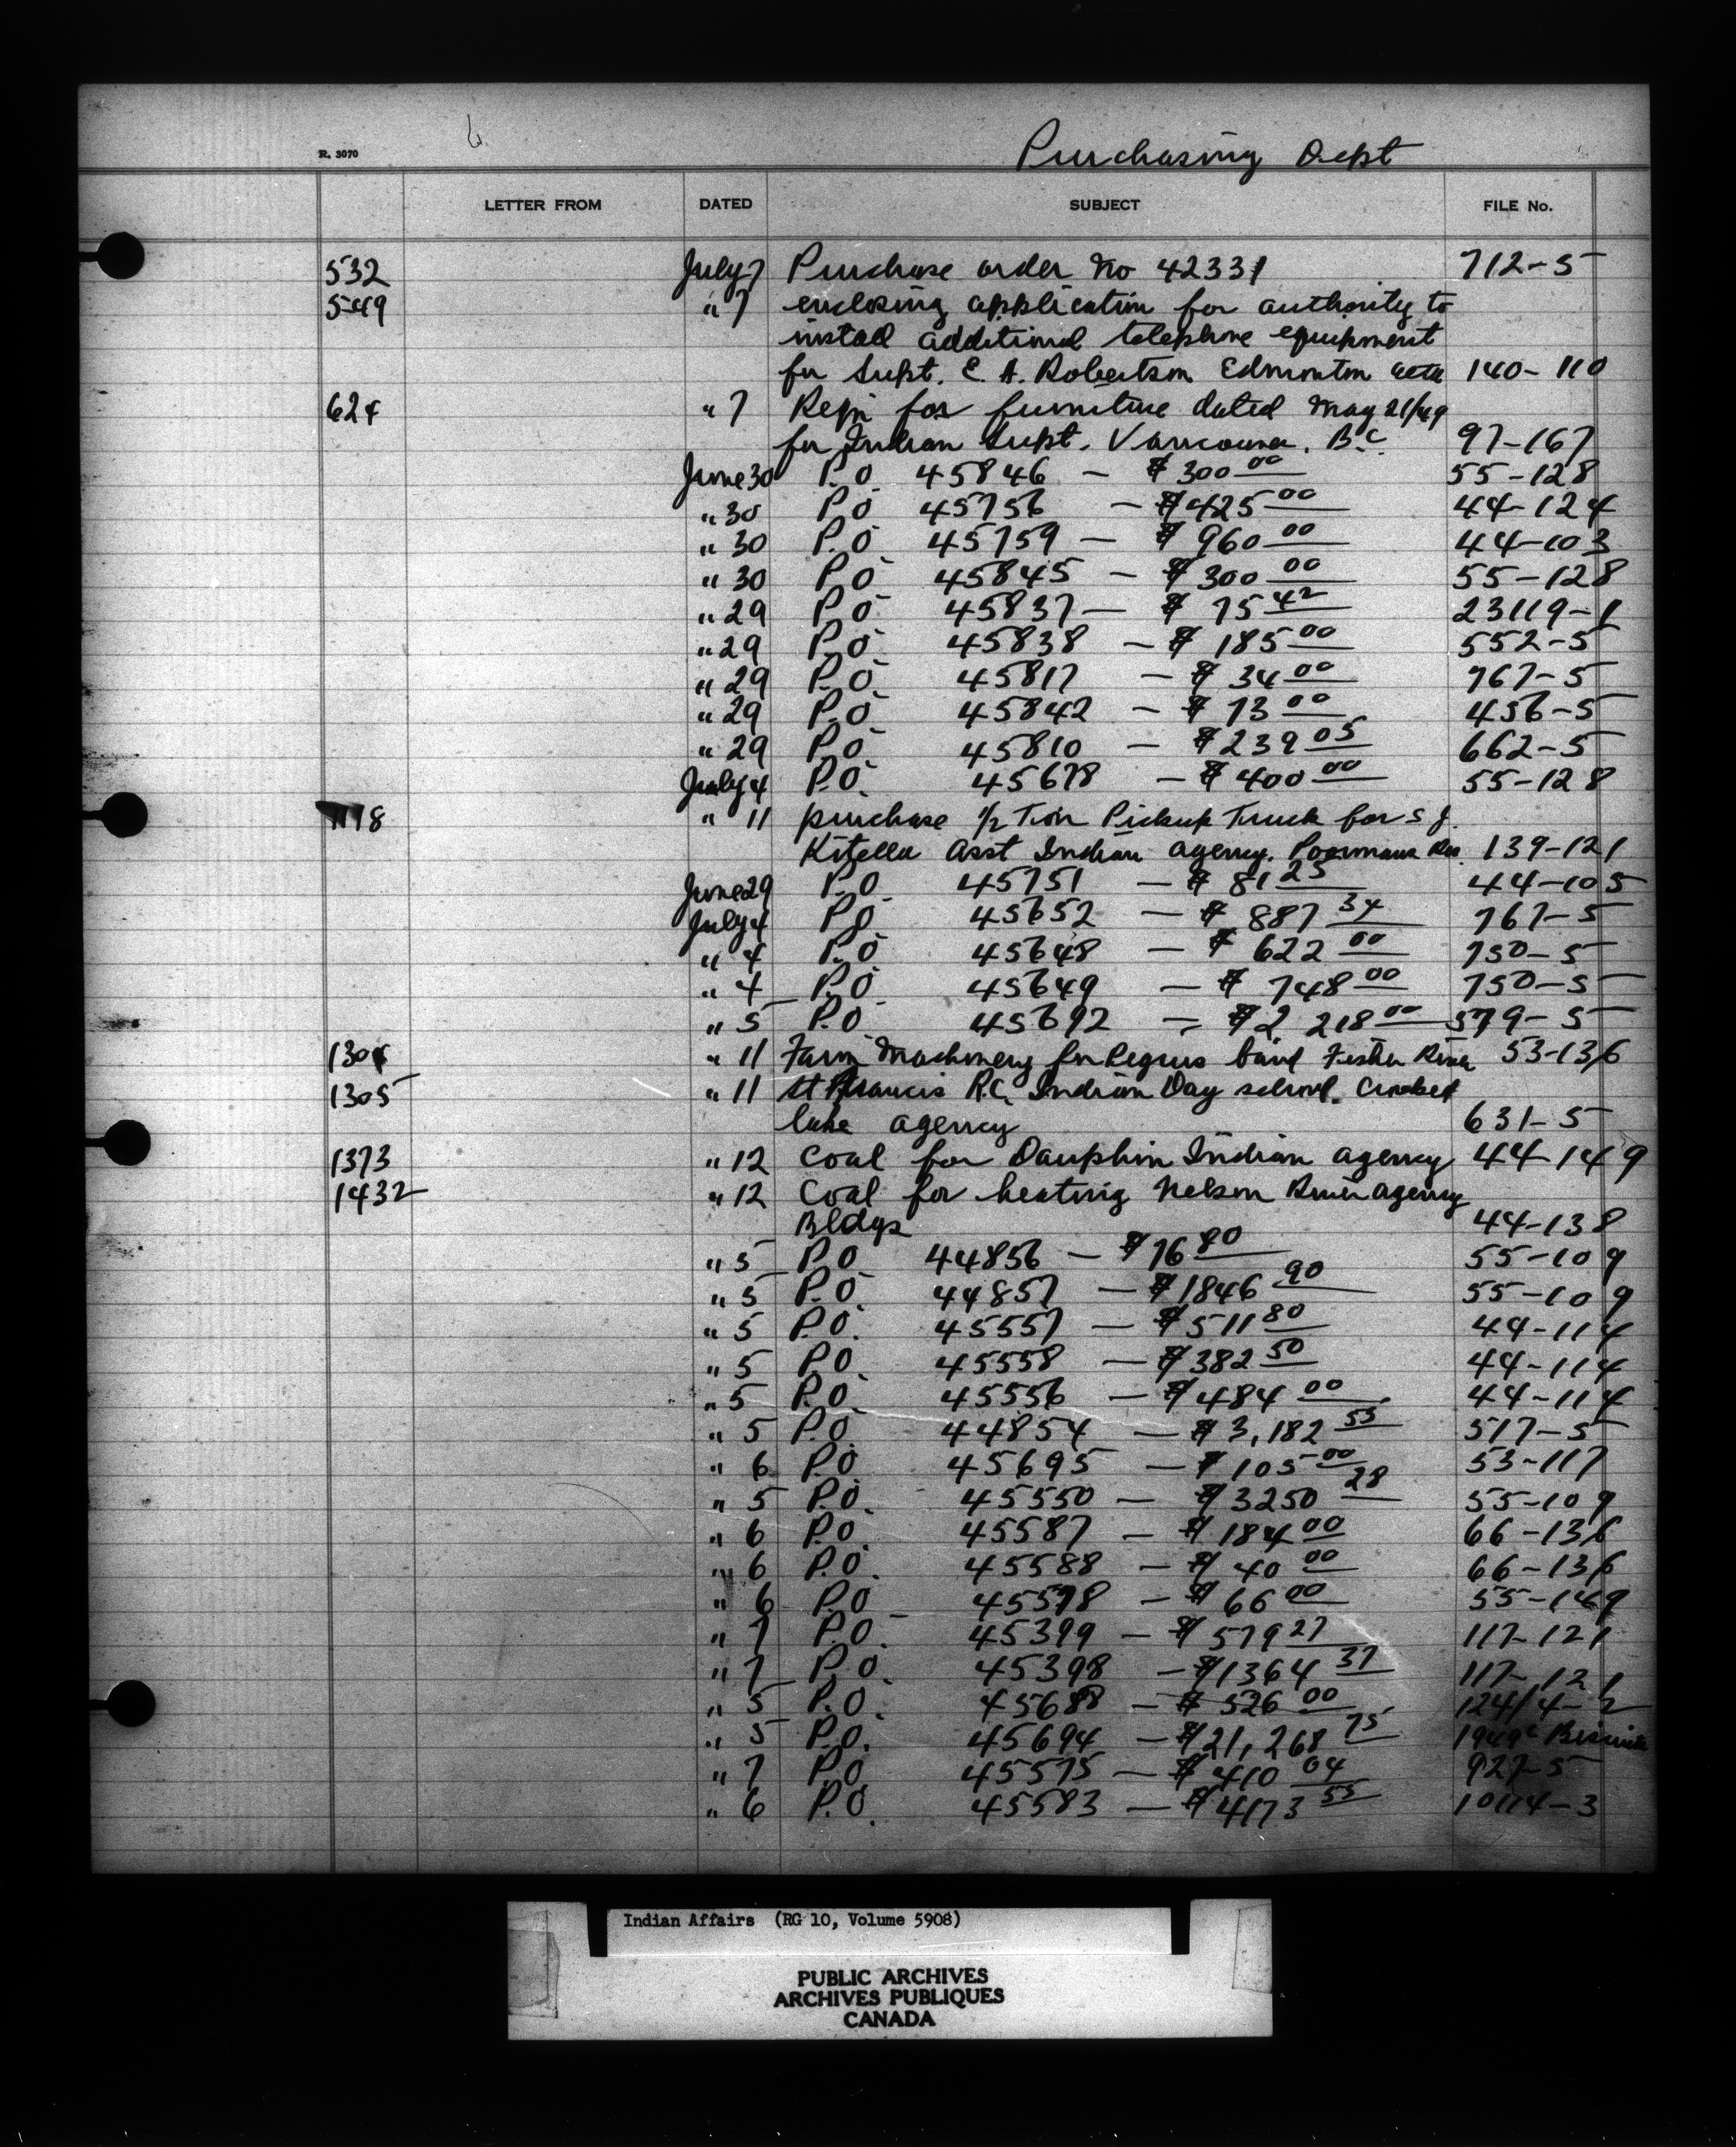 R. 3070
Purchasing Dept
LETTER FROM DATED SUBJECT FILE No.
532 July 7 Purchase order No 42331 712-5
549 " 7 enclosing application for authority to
install additional telephone equipment
for Supt. E. A. Robertson Edmonton 140-110
624 " 7 Reqn for furniture dated May 21/49
for Indian Supt. Vancouver. B.C. 97-167
June 30 P.O. 45846 - $300 00 55-128
" 30 P.O 45756 - $425 00 44-124
" 30 P.O. 45759 - $960 00 44-103
" 30 P.O 45845 - $300 00 55-128
" 29 P.O 45837 - $75 42 23119-1
" 29 P.O 45838 - $185 00 552-5
" 29 P.O. 45817 - $34 00 767-5
" 29 P.O 45842 - $73 00 456-5
" 29 P.O 45810 - $239 05 662-5
July 4 P.O. 45678 - $400 00 55-128
" 11 purchase 1/2 Ton Pickup Truck for S J.
Asst Indian agency. Poormans 139-121
June 29 P.O. 45751 - $81 25 44-105
July 4 P.O 45652 - $887 34 767-5
" 4 P.O 45648 - $622 00 750-5
" 4 P.O 45649 - $748 00 750-5
" 5 P.O. 45692 - $2 218 00 579-5
1304 " 11 Farm Machinery for Peguis band Fisher River 53-136
1305 " 11 St Francis R.C. Indian Day school. Crooked
lake agency 631-5
1373 " 12 Coal for Dauphin Indian agency 44-149
1432 " 12 Coal for heating Nelson River agency
Bldgs 44-138
" 5 P.O. 44856 - $76 80 55-109
" 5 P.O. 44857 - $1846 90 55-109
" 5 P.O. 45557 - $511 80 44-114
" 5 P.O. 45558 - $382 50 44-114
" 5 P.O. 45556 - $484 00 44-114
" 5 P.O. 44854 - $3,182 55 517-5
" 6 P.O. 45695 - $105 00 53-117
" 5 P.O. 45550 - $3250 28 55-109
" 6 P.O. 45587 - $184 00 66-136
" 6 P.O. 45588 - $40 00 66-136
" 6 P.O. 45578 - $66 00 55-149
" 7 P.O. 45399 - $579 27 117-121
" 7 P.O. 45398 - $1364 37 117-121
" 5 P.O. 45688 - $526 00 124/4-2
" 5 P.O. 45694 - $21,268 75
" 7 P.O 45575 - $410 04 927-5
" 6 P.O. 45583 - $4173 55 10114-3
Indian Affairs (RG 10, Volume 5908)
PUBLIC ARCHIVES
ARCHIVES PUBLIQUES
CANADA